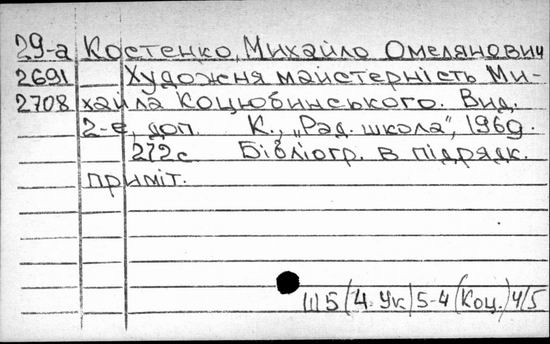 29-а Костенко, Михайло Омелянович
2691 Художня майстерність Ми-
2708 хайла Коцюбинського. Вид.
2-е, доп. К., „Рад. школа", 1969.
272 с Бібліогр. в підрядк.
приміт.
Ш5(4.Ук)5-4(Коц.)4/5